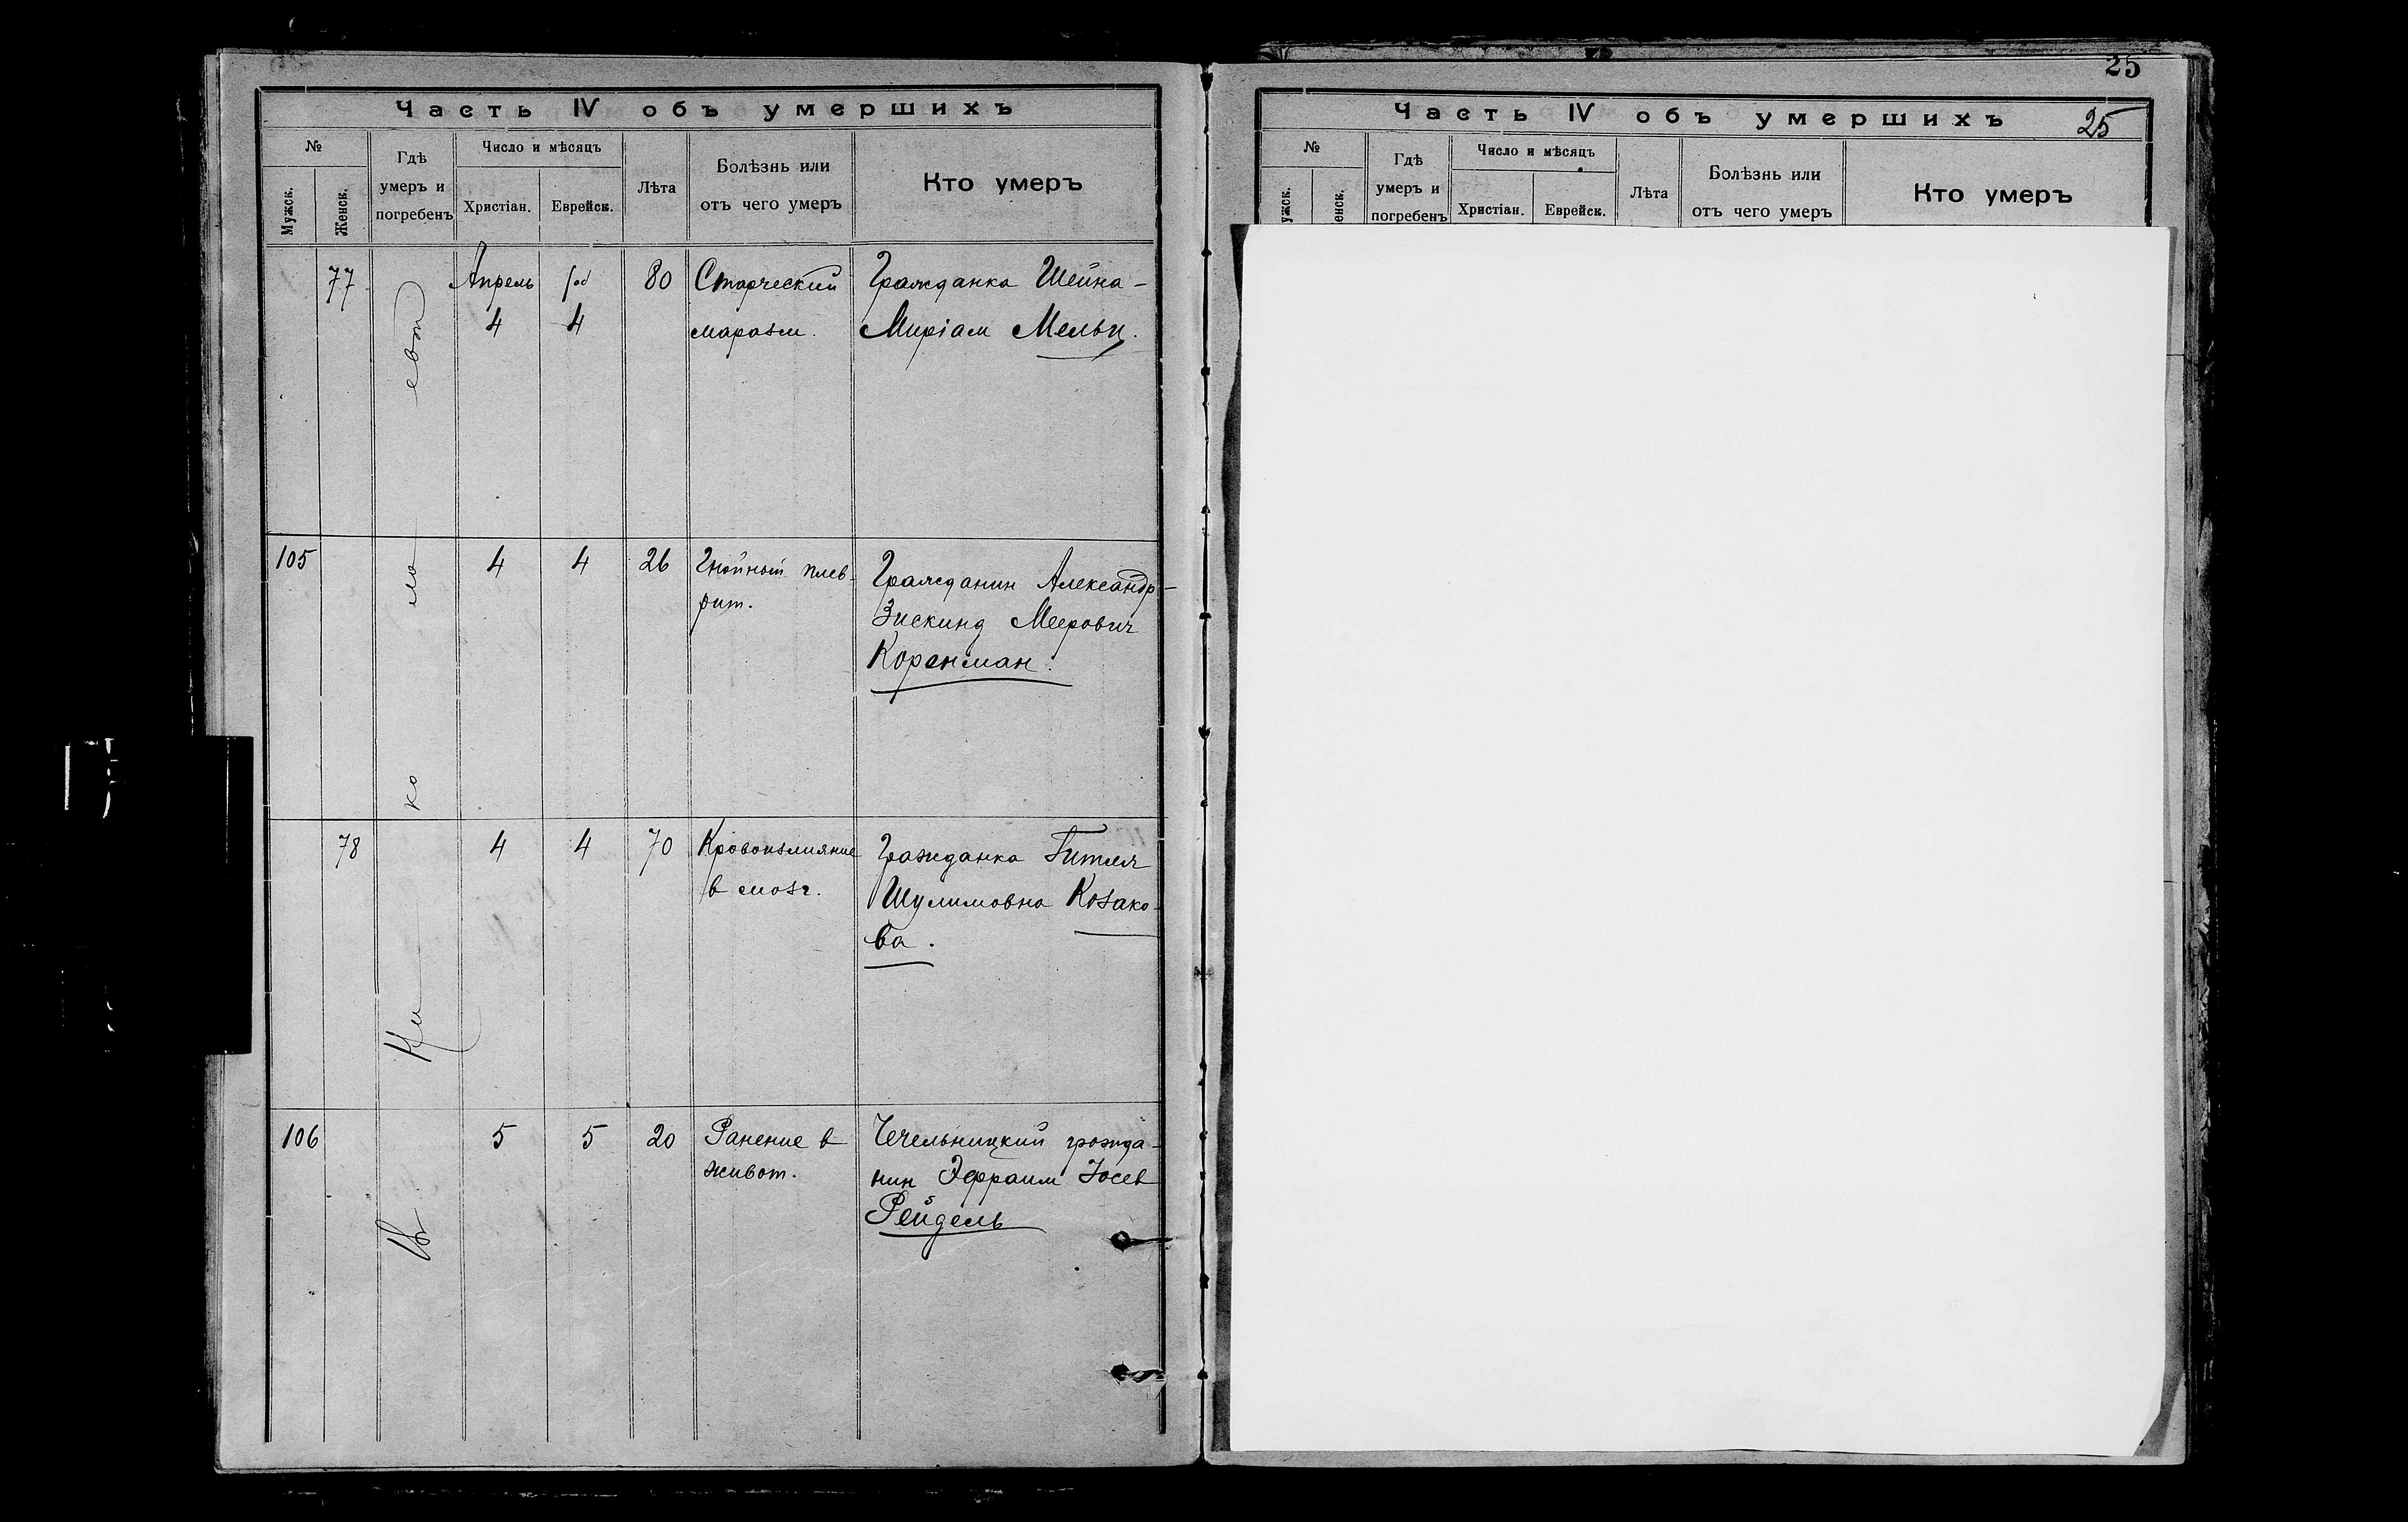 Часть IV объ умершихъ
№
Мужск.
Женск.
Гдѣ
умеръ и
погребенъ
Число и мѣсяцъ
Христіан.
Еврейск.
Лѣта
Болѣзнь или
отъ чего умеръ
Кто умеръ
77
Апрель
4
4
80
Старческий
маразм.
Гражданка Шейна-
Миріам Мельн.
105
4
4
26
Гнойный плев-
рит.
Гражданин Александр-
Зискинд Меерович
Коренман.
78
4
4
70
Кровоизлияние
в мозг.
Гражданка Гитля
Шулимовна Козако-
ва.
106
5
5
20
Ранение в
живот.
Чечельницкий гражда-
нин Эфраим Іосев
Рейдель
В Николаеве
25
Часть IV объ умершихъ
25
№
ужск.
енск.
Гдѣ
умеръ и
погребенъ
Число и мѣсяцъ
Христіан.
Еврейск.
Лѣта
Болѣзнь или
отъ чего умеръ
Кто умеръ